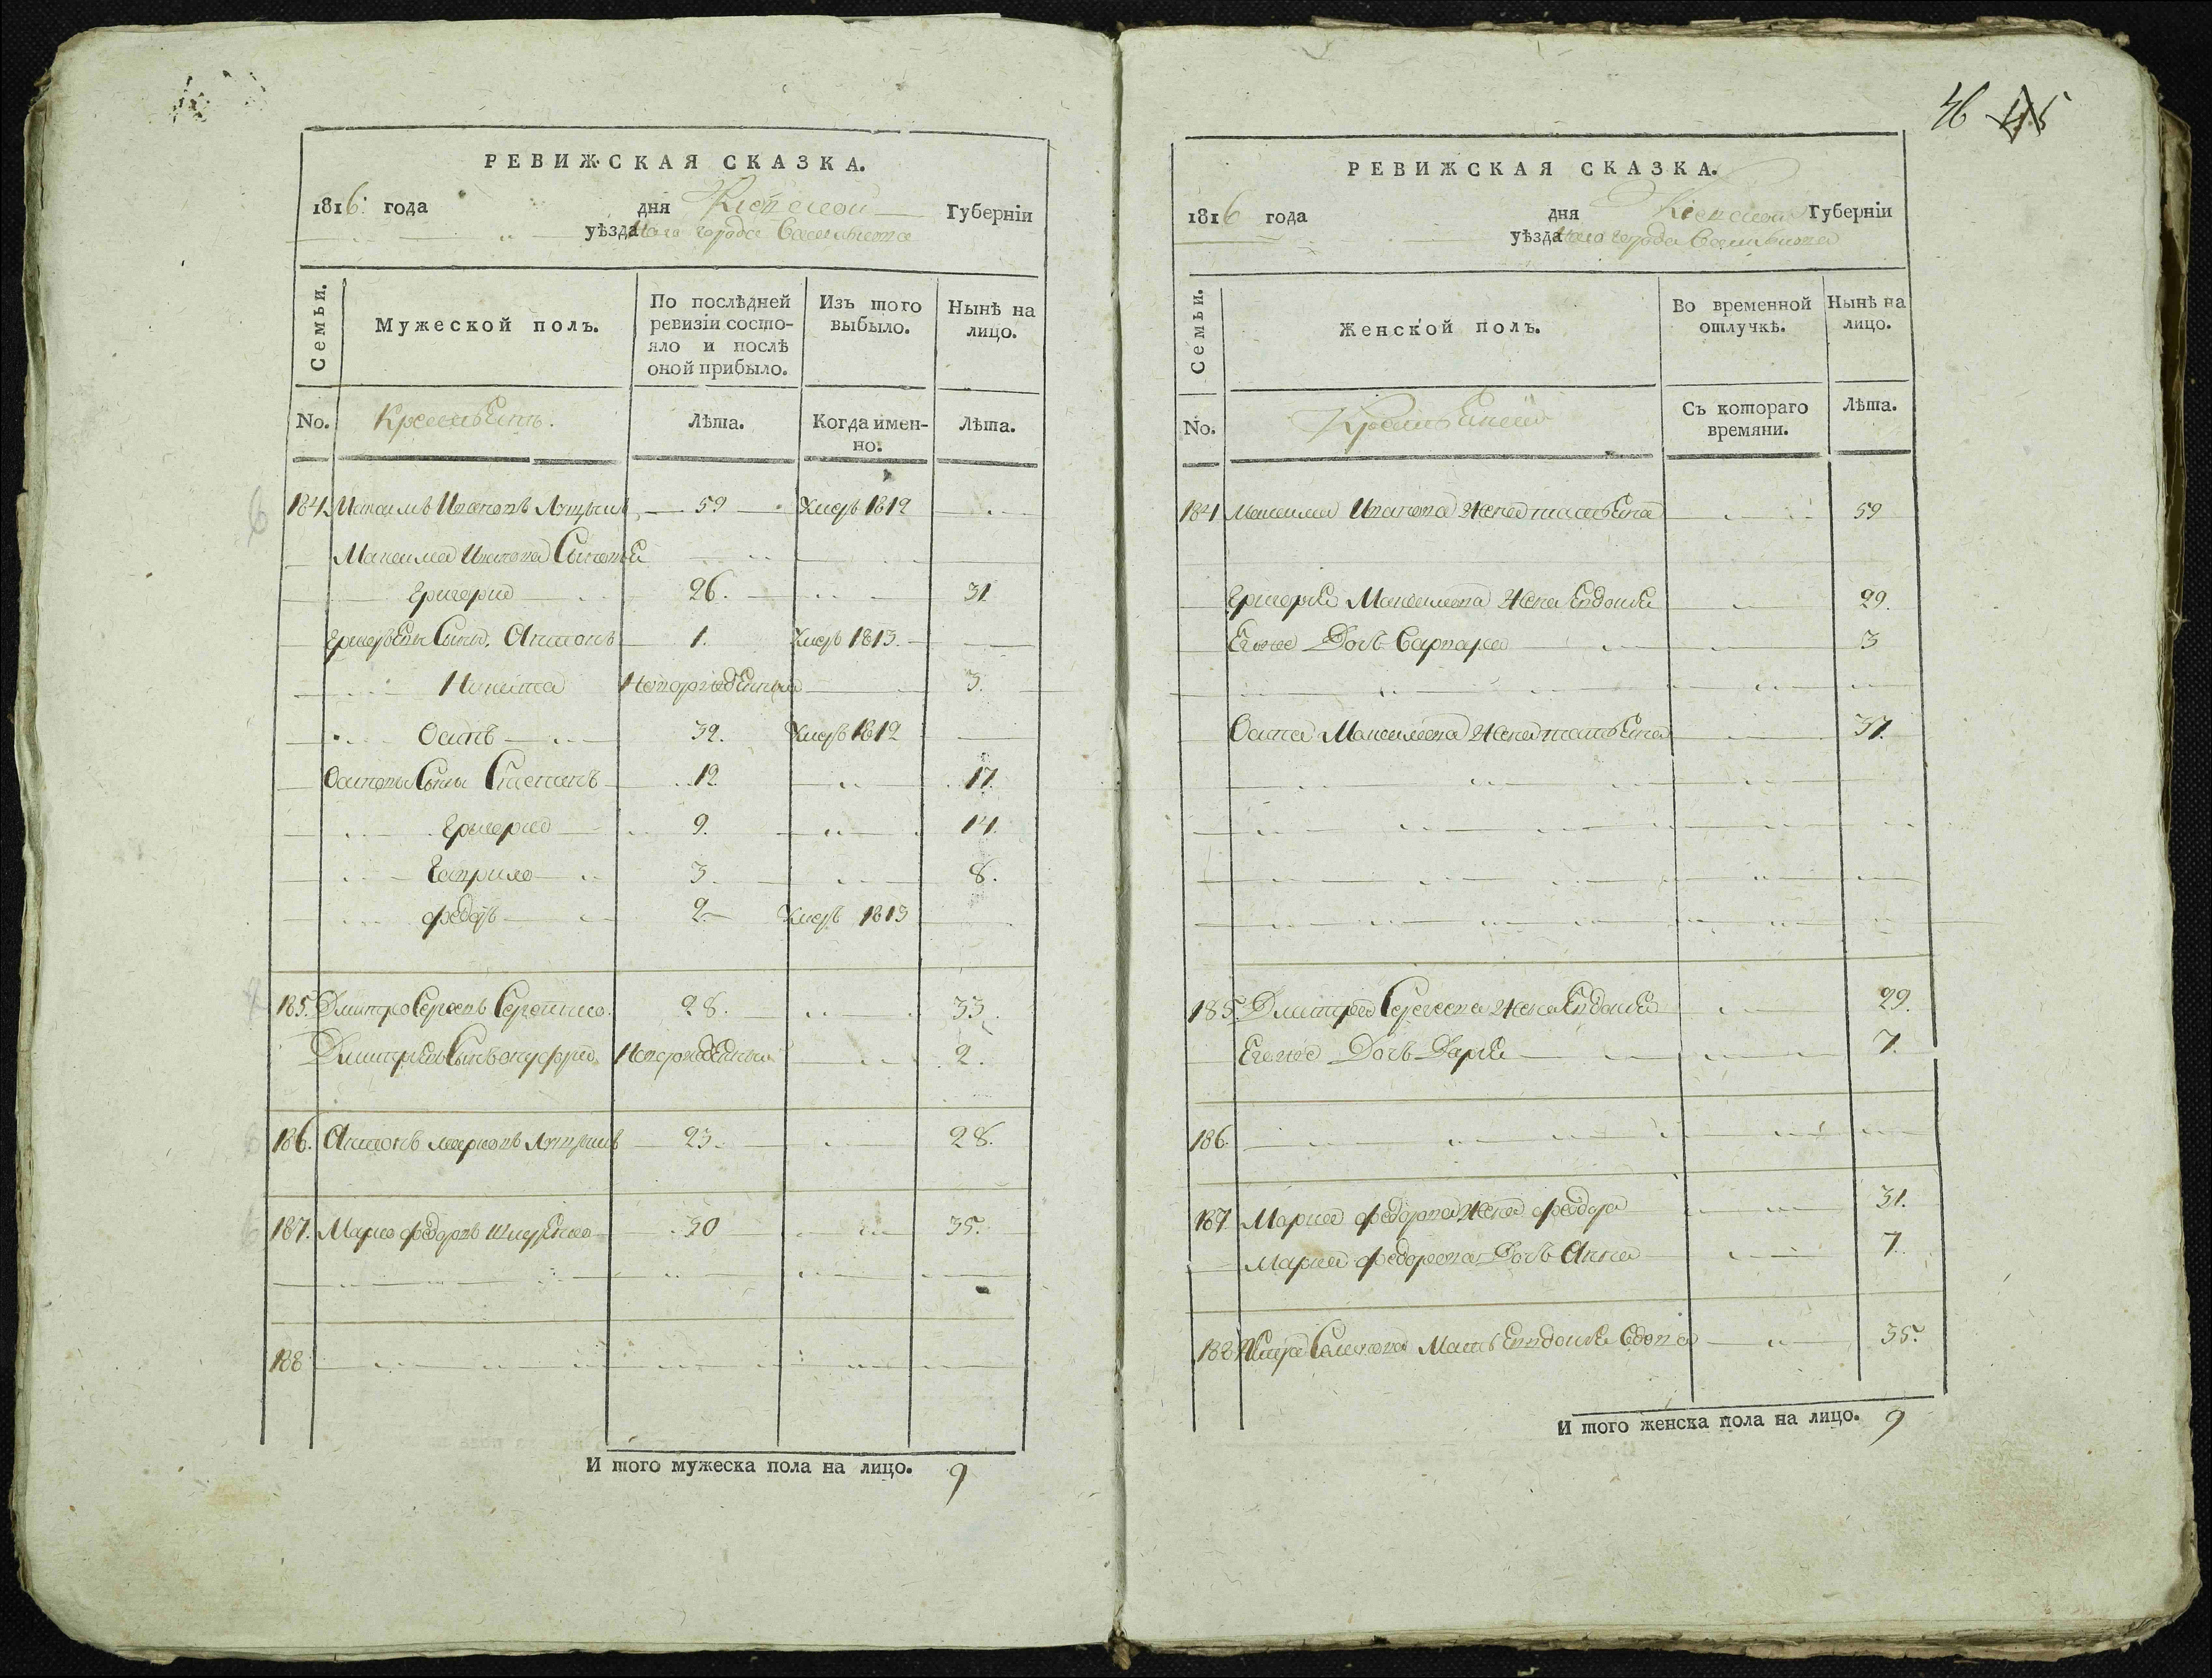 46 45
РЕВИЖСКАЯ СКАЗКА.
1816. года дня Кіевской Губерніи
уѣзда города Василькова
Семьи.
Мужеской полъ.
По послѣдней ревизіи состояло и послѣ оной прибыло.
Изъ того выбыло.
Нынѣ на лицо.
No.
Лѣта.
Когда именно.
Лѣта.
184. Иванов 59 Умеръ 1812
Максима Иванова Сыновья
Григорий 26. 31
Григорьевы Сыны. Антонъ 1. Умеръ 1813.
Никита Новорожденный 3.
Осипъ 32. Умеръ 1812
Осиповы Сыны Степанъ 12 17.
Григорий 9. 14.
Гаврило 3. 8.
Федоръ 2 Умеръ 1813
185. Дмитро Сергеевъ 28. 33.
Дмитриевъ Сынъ Онуфрий Новорожденный 2.
186. Антонъ Марковъ 23. 28.
187. Марко Федоровъ 30 35.
188
И того мужеска пола на лицо. 9
РЕВИЖСКАЯ СКАЗКА.
1816 года дня Кіевской Губерніи
уѣзда города Василькова
Семьи.
Женской полъ.
Во временной отлучкѣ.
Нынѣ на лицо.
No.
Съ котораго времяни.
Лѣта.
184 Максима Иванова Жена 59
Григорья Максимова Жена Евдокия 29.
Егоже Дочь Варвара 3
Осипа Максимова Жена 37.
185. Дмитрия Сергеева Жена Евдокия 29.
Егоже Дочь Дарья 7.
186.
187 Марка Федорова Жена Федора 31.
Марка Федорова Дочь Анна 7.
188 Мать Евдокия Вдова 35.
И того женска пола на лицо. 9